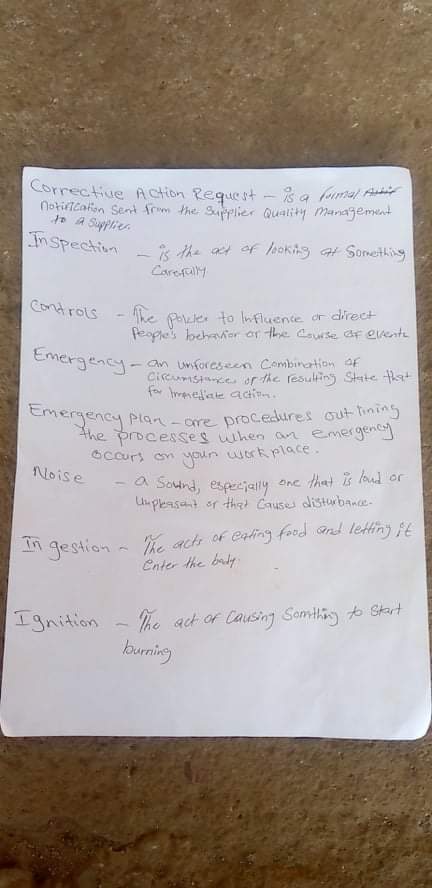 Corrective Action Request - is a formal
notification sent from the Supplier Quality Management
to a Supplier.
Inspection - is the act of looking at Something
Carefully
Controls - The power to Influence or direct
People's behavior or the Course of events
Emergency - an unforeseen Combination of
Circumstances or the resulting State that
for Immediate action.
Emergency plan - are procedures outlining
the processes when an emergency
occurs on your workplace.
Noise - a Sound, especially one that is loud or
Unpleasant or that Causes disturbance.
Ingestion - The acts of eating food and letting it
Enter the body.
Ignition - The act of Causing Somthing to Start
burning